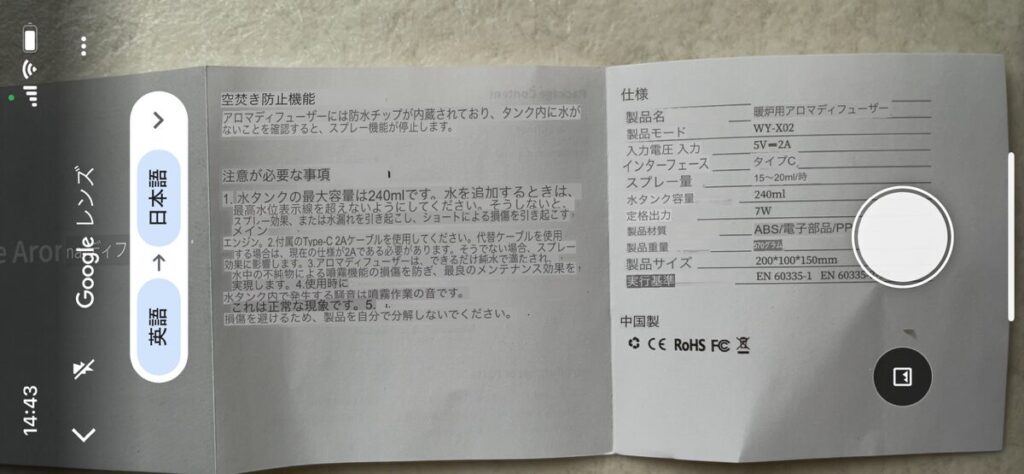 14:43
Google レンズ
英語 → 日本語
空焚き防止機能
アロマディフューザーには防水チップが内蔵されており、タンク内に水が
ないことを確認すると、スプレー機能が停止します。
注意が必要な事項
1. 水タンクの最大容量は240mlです。水を追加するときは、
最高水位表示線を超えないようにしてください。そうしないと、
スプレー効果、または水漏れを引き起こし、ショートによる損傷を引き起こす
メイン
エンジン。2.付属のType-C 2Aケーブルを使用してください。代替ケーブルを使用
する場合は、現在の仕様が2Aである必要があります。そうでない場合、スプレー
効果に影響します。3.アロマディフューザーは、できるだけ純水で満たされ、
水中の不純物による噴霧機能の損傷を防ぎ、最良のメンテナンス効果を
実現します。4.使用時に
水タンク内で発生する騒音は噴霧作業の音です。
これは正常な現象です。5.
損傷を避けるため、製品を自分で分解しないでください。
仕様
製品名 暖炉用アロマディフューザー
製品モード WY-X02
入力電圧 入力 5V=2A
インターフェース タイプC
スプレー量 15～20ml/時
水タンク容量 240ml
定格出力 7W
製品材質 ABS/電子部品/PP
製品重量 670グラム
製品サイズ 200*100*150mm
実行基準 EN 60335-1 EN 60335-
中国製
CE RoHS FC